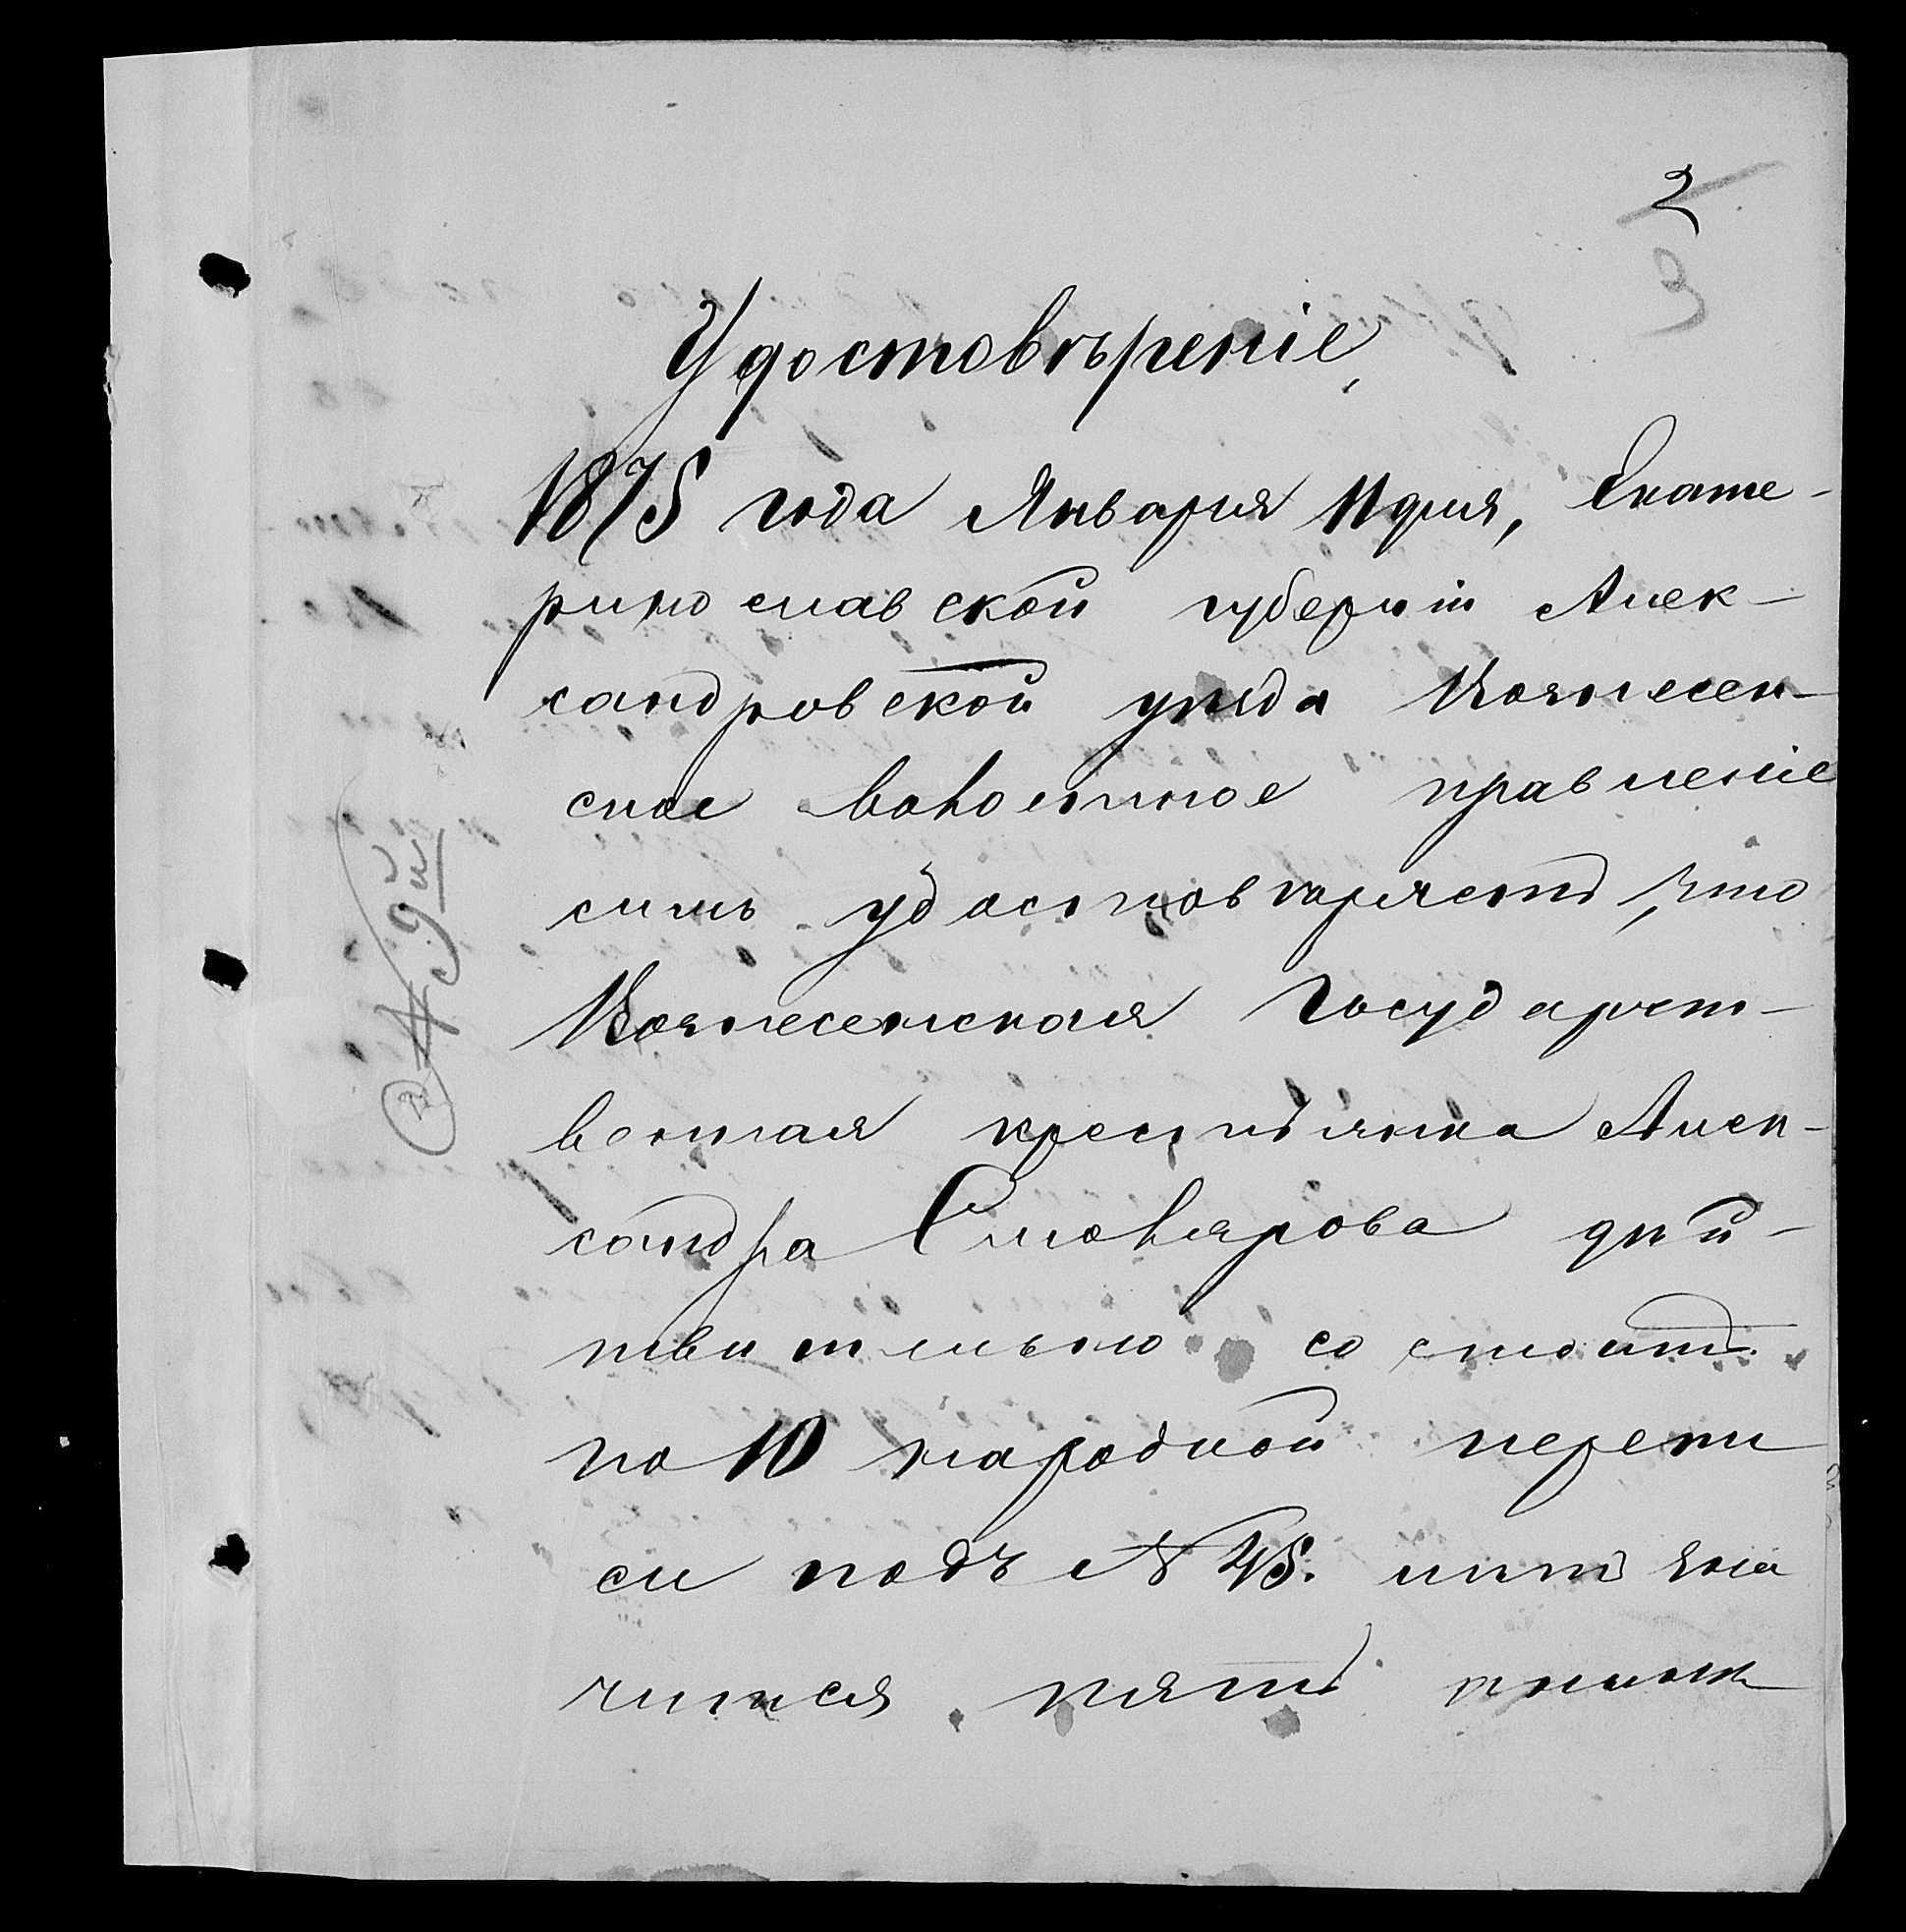 2
3
Удостовѣреніе,
1875 года Января 11 дня, Екате-
ринославской губерніи Алек-
сандровской уѣзда Вознесен-
ское волостное правленіе
симъ удостовѣряетъ, что
Вознесенская Государст-
венная крестьянка Алек-
сандра Столярова дѣй-
твительно состоитъ
по 10 народной перепи
си подъ № 45. лѣтъ зна
чится пять
№ 9й